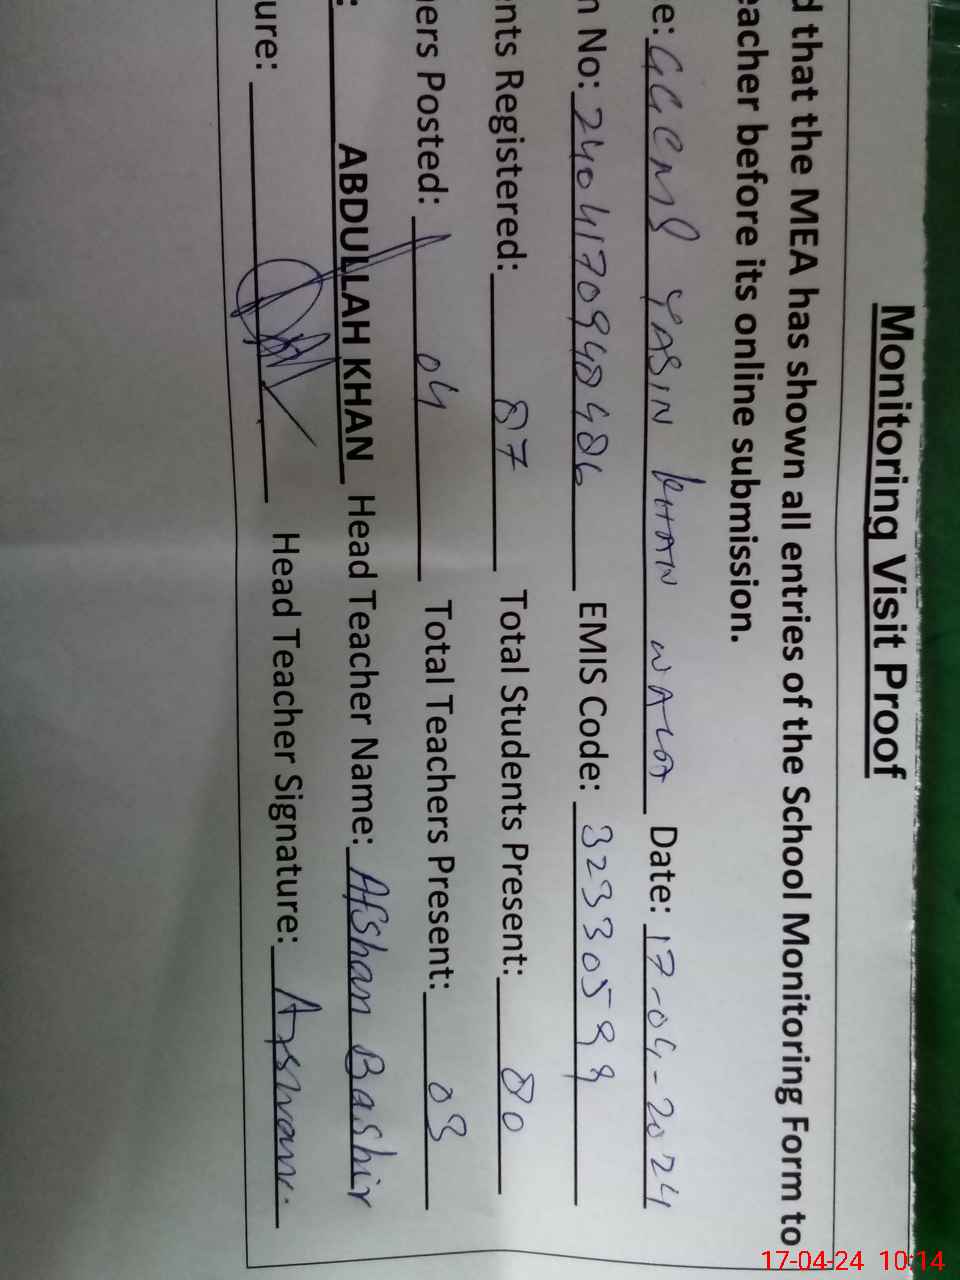 Monitoring Visit Proof
d that the MEA has shown all entries of the School Monitoring Form to
eacher before its online submission.
e: GGCMS YASIN KHAN WALA Date: 17-04-2024
n No: 240417094940486 EMIS Code: 32330599
nts Registered: 87 Total Students Present: 80
ers Posted: 04 Total Teachers Present: 03
: ABDULLAH KHAN Head Teacher Name: Afshan Bashir
ure: Head Teacher Signature:
17-04-24 10:14